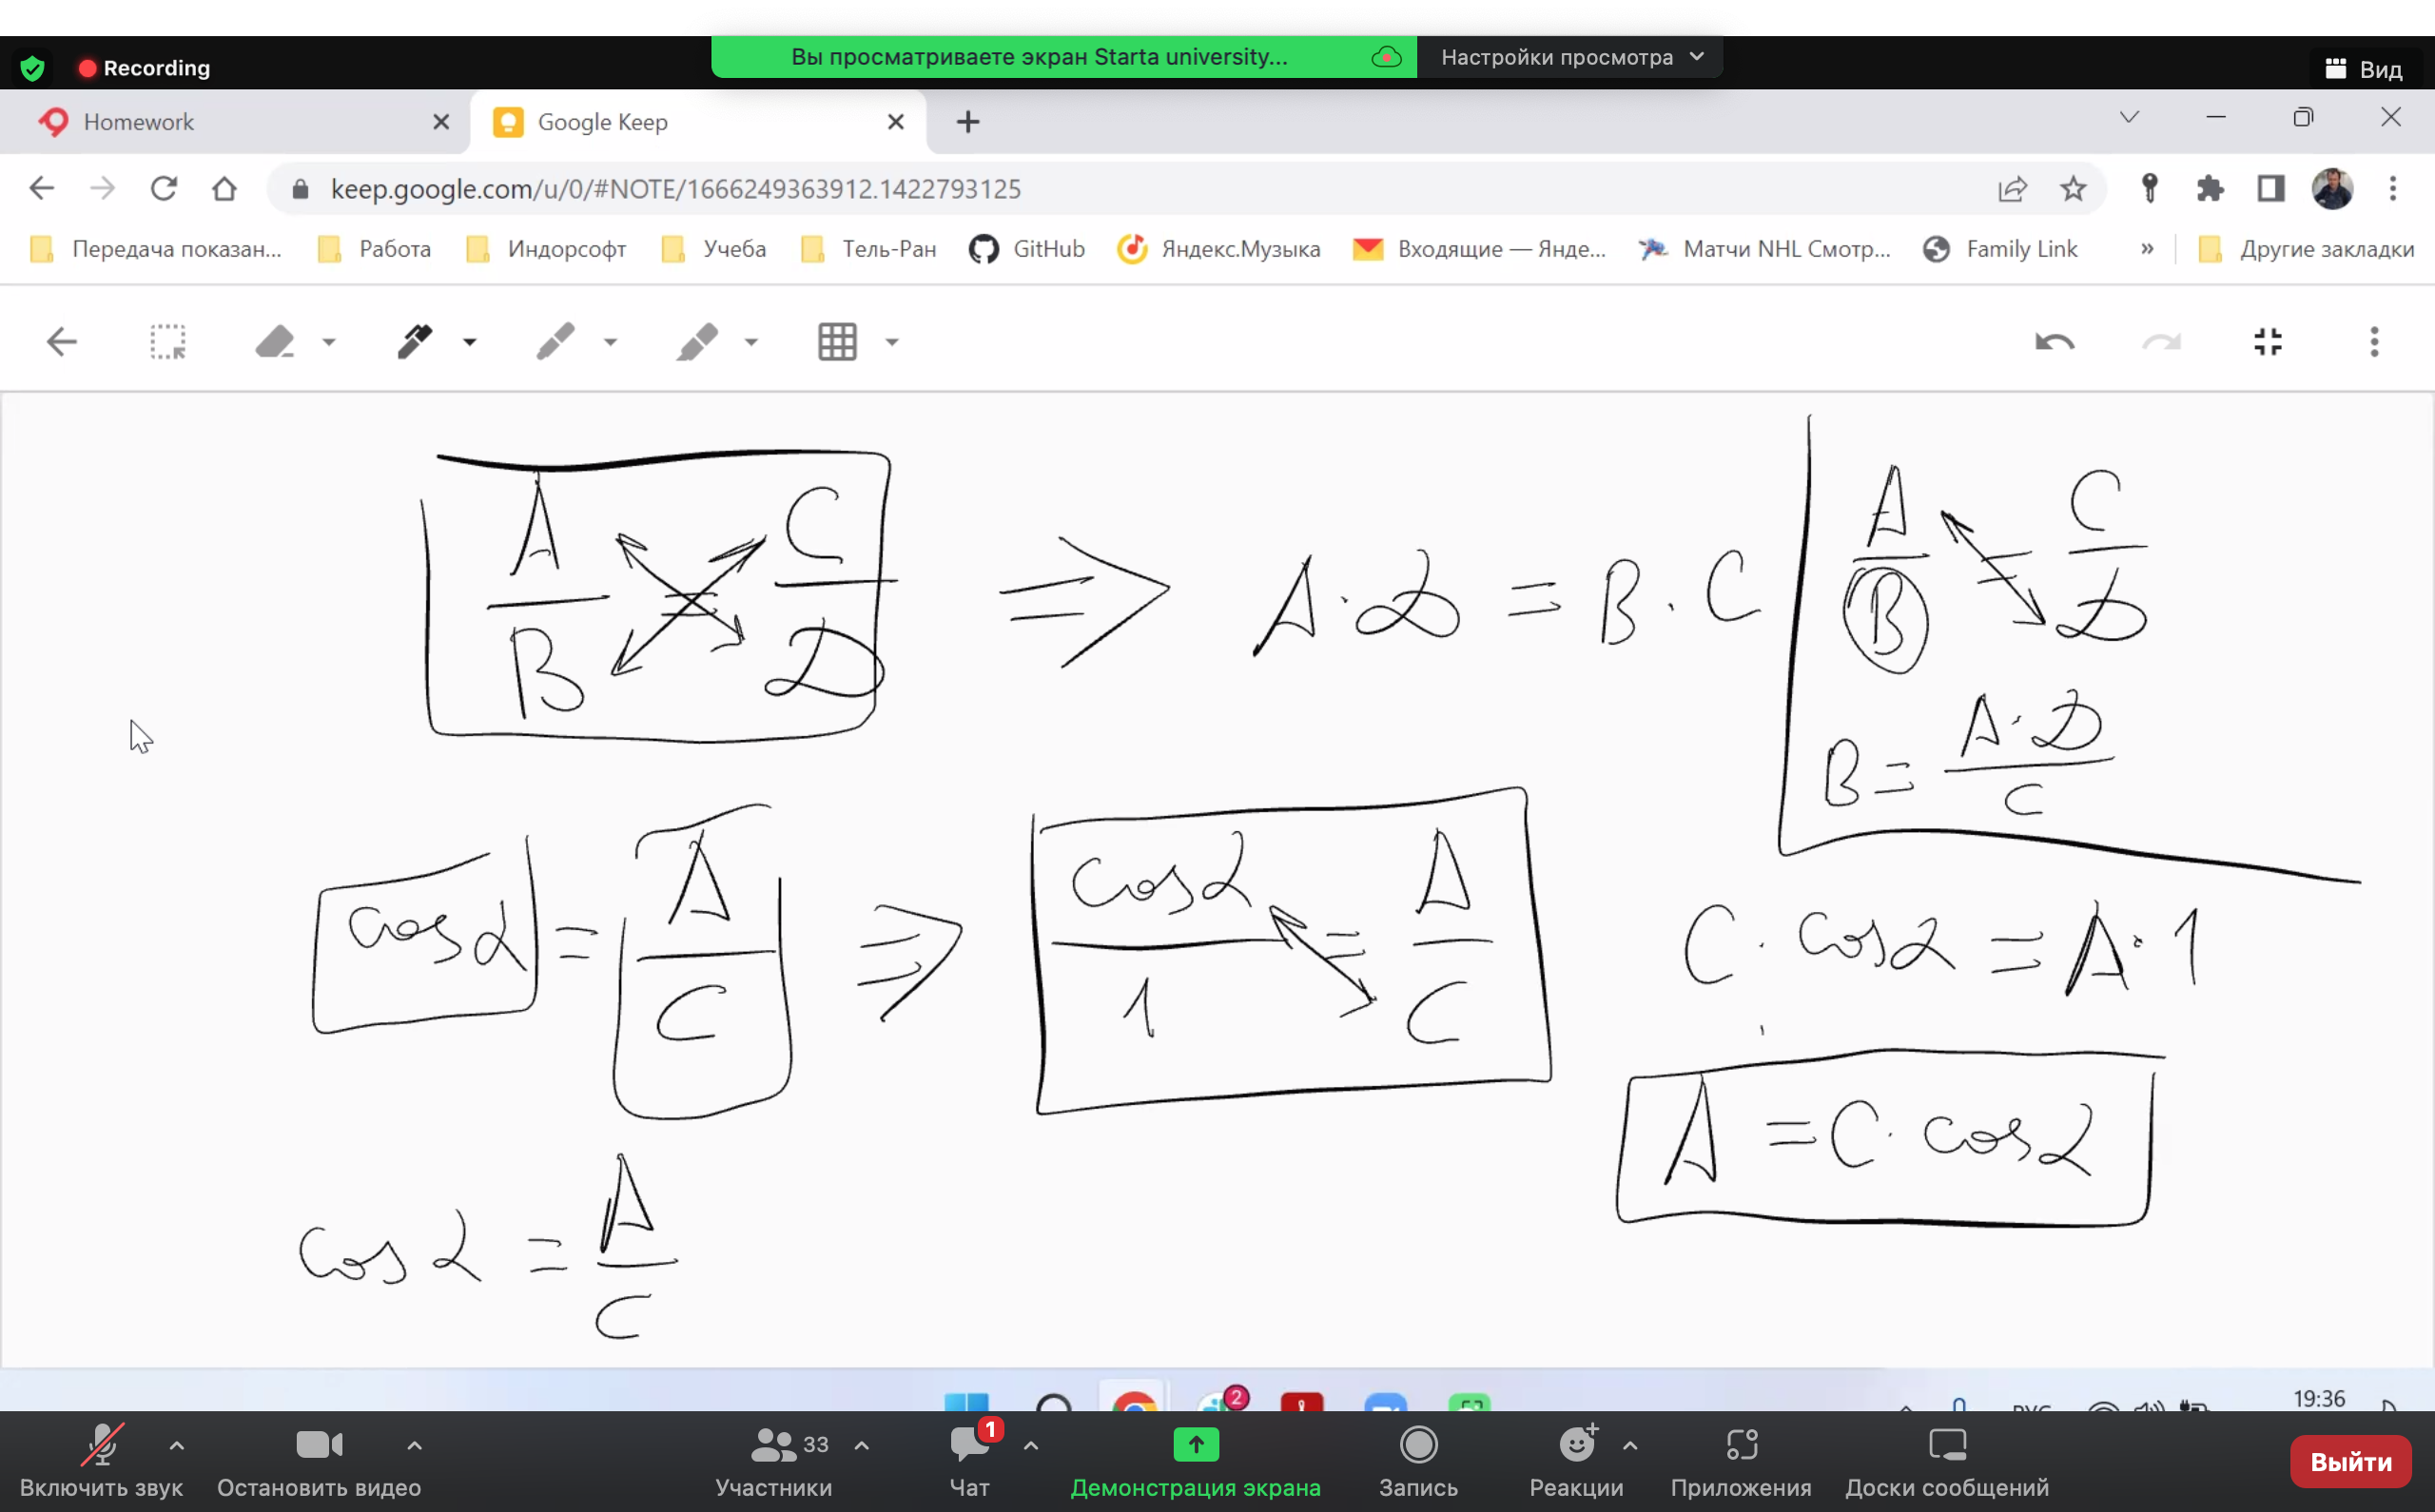 Recording
Вы просматриваете экран Starta university...
Настройки просмотра
Вид
Homework
Google Keep
keep.google.com/u/0/#NOTE/1666249363912.1422793125
Передача показан...
Работа
Индорсофт
Учеба
Тель-Ран
GitHub
Яндекс.Музыка
Входящие — Янде...
Матчи NHL Смотр...
Family Link
»
Другие закладки
A/B = C/D ⇒ A·D = B·C
A/B = C/D
B = A·D/C
cos α = A/C ⇒ cos α/1 = A/C
C · cos α = A · 1
A = C · cos α
cos α = A/C
2
РУС
19:36
Включить звук
Остановить видео
33
Участники
1
Чат
Демонстрация экрана
Запись
Реакции
Приложения
Доски сообщений
Выйти